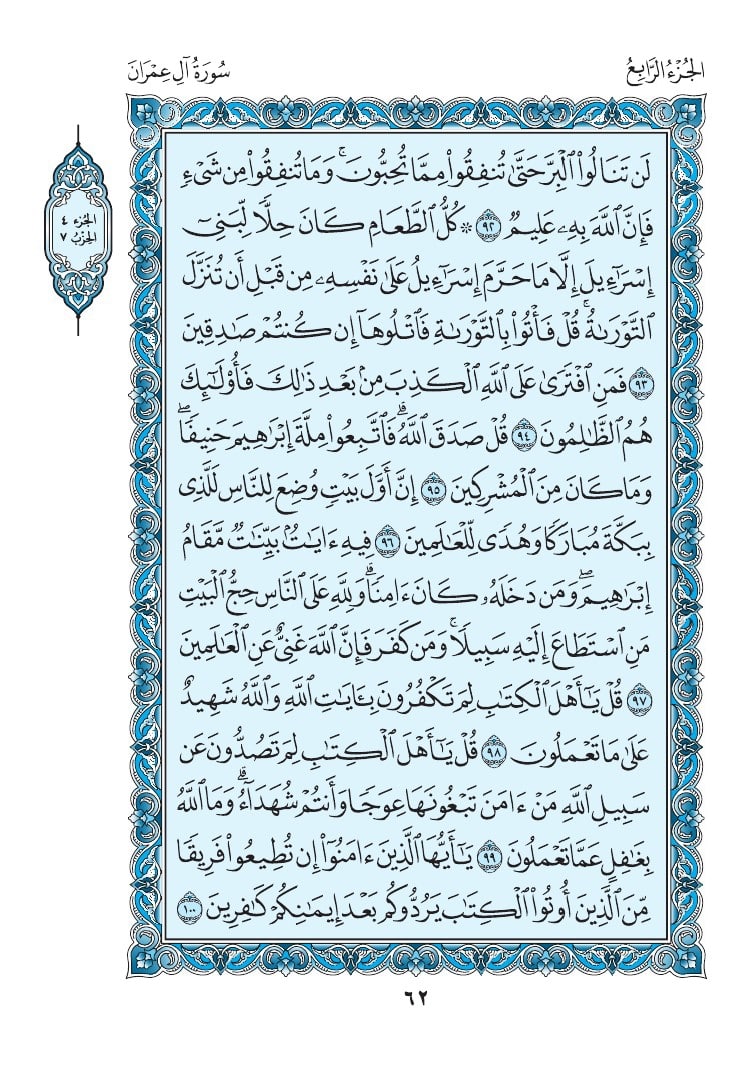 الجُزْءُ الرَّابِعُ
سُورَةُ آلِ عِمْرَان
الجزء ٤
الحِزبُ ٧
لَن تَنَالُوا۟ ٱلْبِرَّ حَتَّىٰ تُنفِقُوا۟ مِمَّا تُحِبُّونَ ۚ وَمَا تُنفِقُوا۟ مِن شَىْءٍ
فَإِنَّ ٱللَّهَ بِهِۦ عَلِيمٌ ٩٢ ۞ كُلُّ ٱلطَّعَامِ كَانَ حِلًّا لِّبَنِىٓ
إِسْرَٰٓءِيلَ إِلَّا مَا حَرَّمَ إِسْرَٰٓءِيلُ عَلَىٰ نَفْسِهِۦ مِن قَبْلِ أَن تُنَزَّلَ
ٱلتَّوْرَىٰةُ ۗ قُلْ فَأْتُوا۟ بِٱلتَّوْرَىٰةِ فَٱتْلُوهَآ إِن كُنتُمْ صَٰدِقِينَ
٩٣ فَمَنِ ٱفْتَرَىٰ عَلَى ٱللَّهِ ٱلْكَذِبَ مِنۢ بَعْدِ ذَٰلِكَ فَأُو۟لَٰٓئِكَ
هُمُ ٱلظَّٰلِمُونَ ٩٤ قُلْ صَدَقَ ٱللَّهُ ۗ فَٱتَّبِعُوا۟ مِلَّةَ إِبْرَٰهِيمَ حَنِيفًا ۖ
وَمَا كَانَ مِنَ ٱلْمُشْرِكِينَ ٩٥ إِنَّ أَوَّلَ بَيْتٍ وُضِعَ لِلنَّاسِ لَلَّذِى
بِبَكَّةَ مُبَارَكًا وَهُدًى لِّلْعَٰلَمِينَ ٩٦ فِيهِ ءَايَٰتٌۢ بَيِّنَٰتٌ مَّقَامُ
إِبْرَٰهِيمَ ۖ وَمَن دَخَلَهُۥ كَانَ ءَامِنًا ۗ وَلِلَّهِ عَلَى ٱلنَّاسِ حِجُّ ٱلْبَيْتِ
مَنِ ٱسْتَطَاعَ إِلَيْهِ سَبِيلًا ۚ وَمَن كَفَرَ فَإِنَّ ٱللَّهَ غَنِىٌّ عَنِ ٱلْعَٰلَمِينَ
٩٧ قُلْ يَٰٓأَهْلَ ٱلْكِتَٰبِ لِمَ تَكْفُرُونَ بِـَٔايَٰتِ ٱللَّهِ وَٱللَّهُ شَهِيدٌ
عَلَىٰ مَا تَعْمَلُونَ ٩٨ قُلْ يَٰٓأَهْلَ ٱلْكِتَٰبِ لِمَ تَصُدُّونَ عَن
سَبِيلِ ٱللَّهِ مَنْ ءَامَنَ تَبْغُونَهَا عِوَجًا وَأَنتُمْ شُهَدَآءُ ۗ وَمَا ٱللَّهُ
بِغَٰفِلٍ عَمَّا تَعْمَلُونَ ٩٩ يَٰٓأَيُّهَا ٱلَّذِينَ ءَامَنُوٓا۟ إِن تُطِيعُوا۟ فَرِيقًا
مِّنَ ٱلَّذِينَ أُوتُوا۟ ٱلْكِتَٰبَ يَرُدُّوكُم بَعْدَ إِيمَٰنِكُمْ كَٰفِرِينَ ١٠٠
٦٢